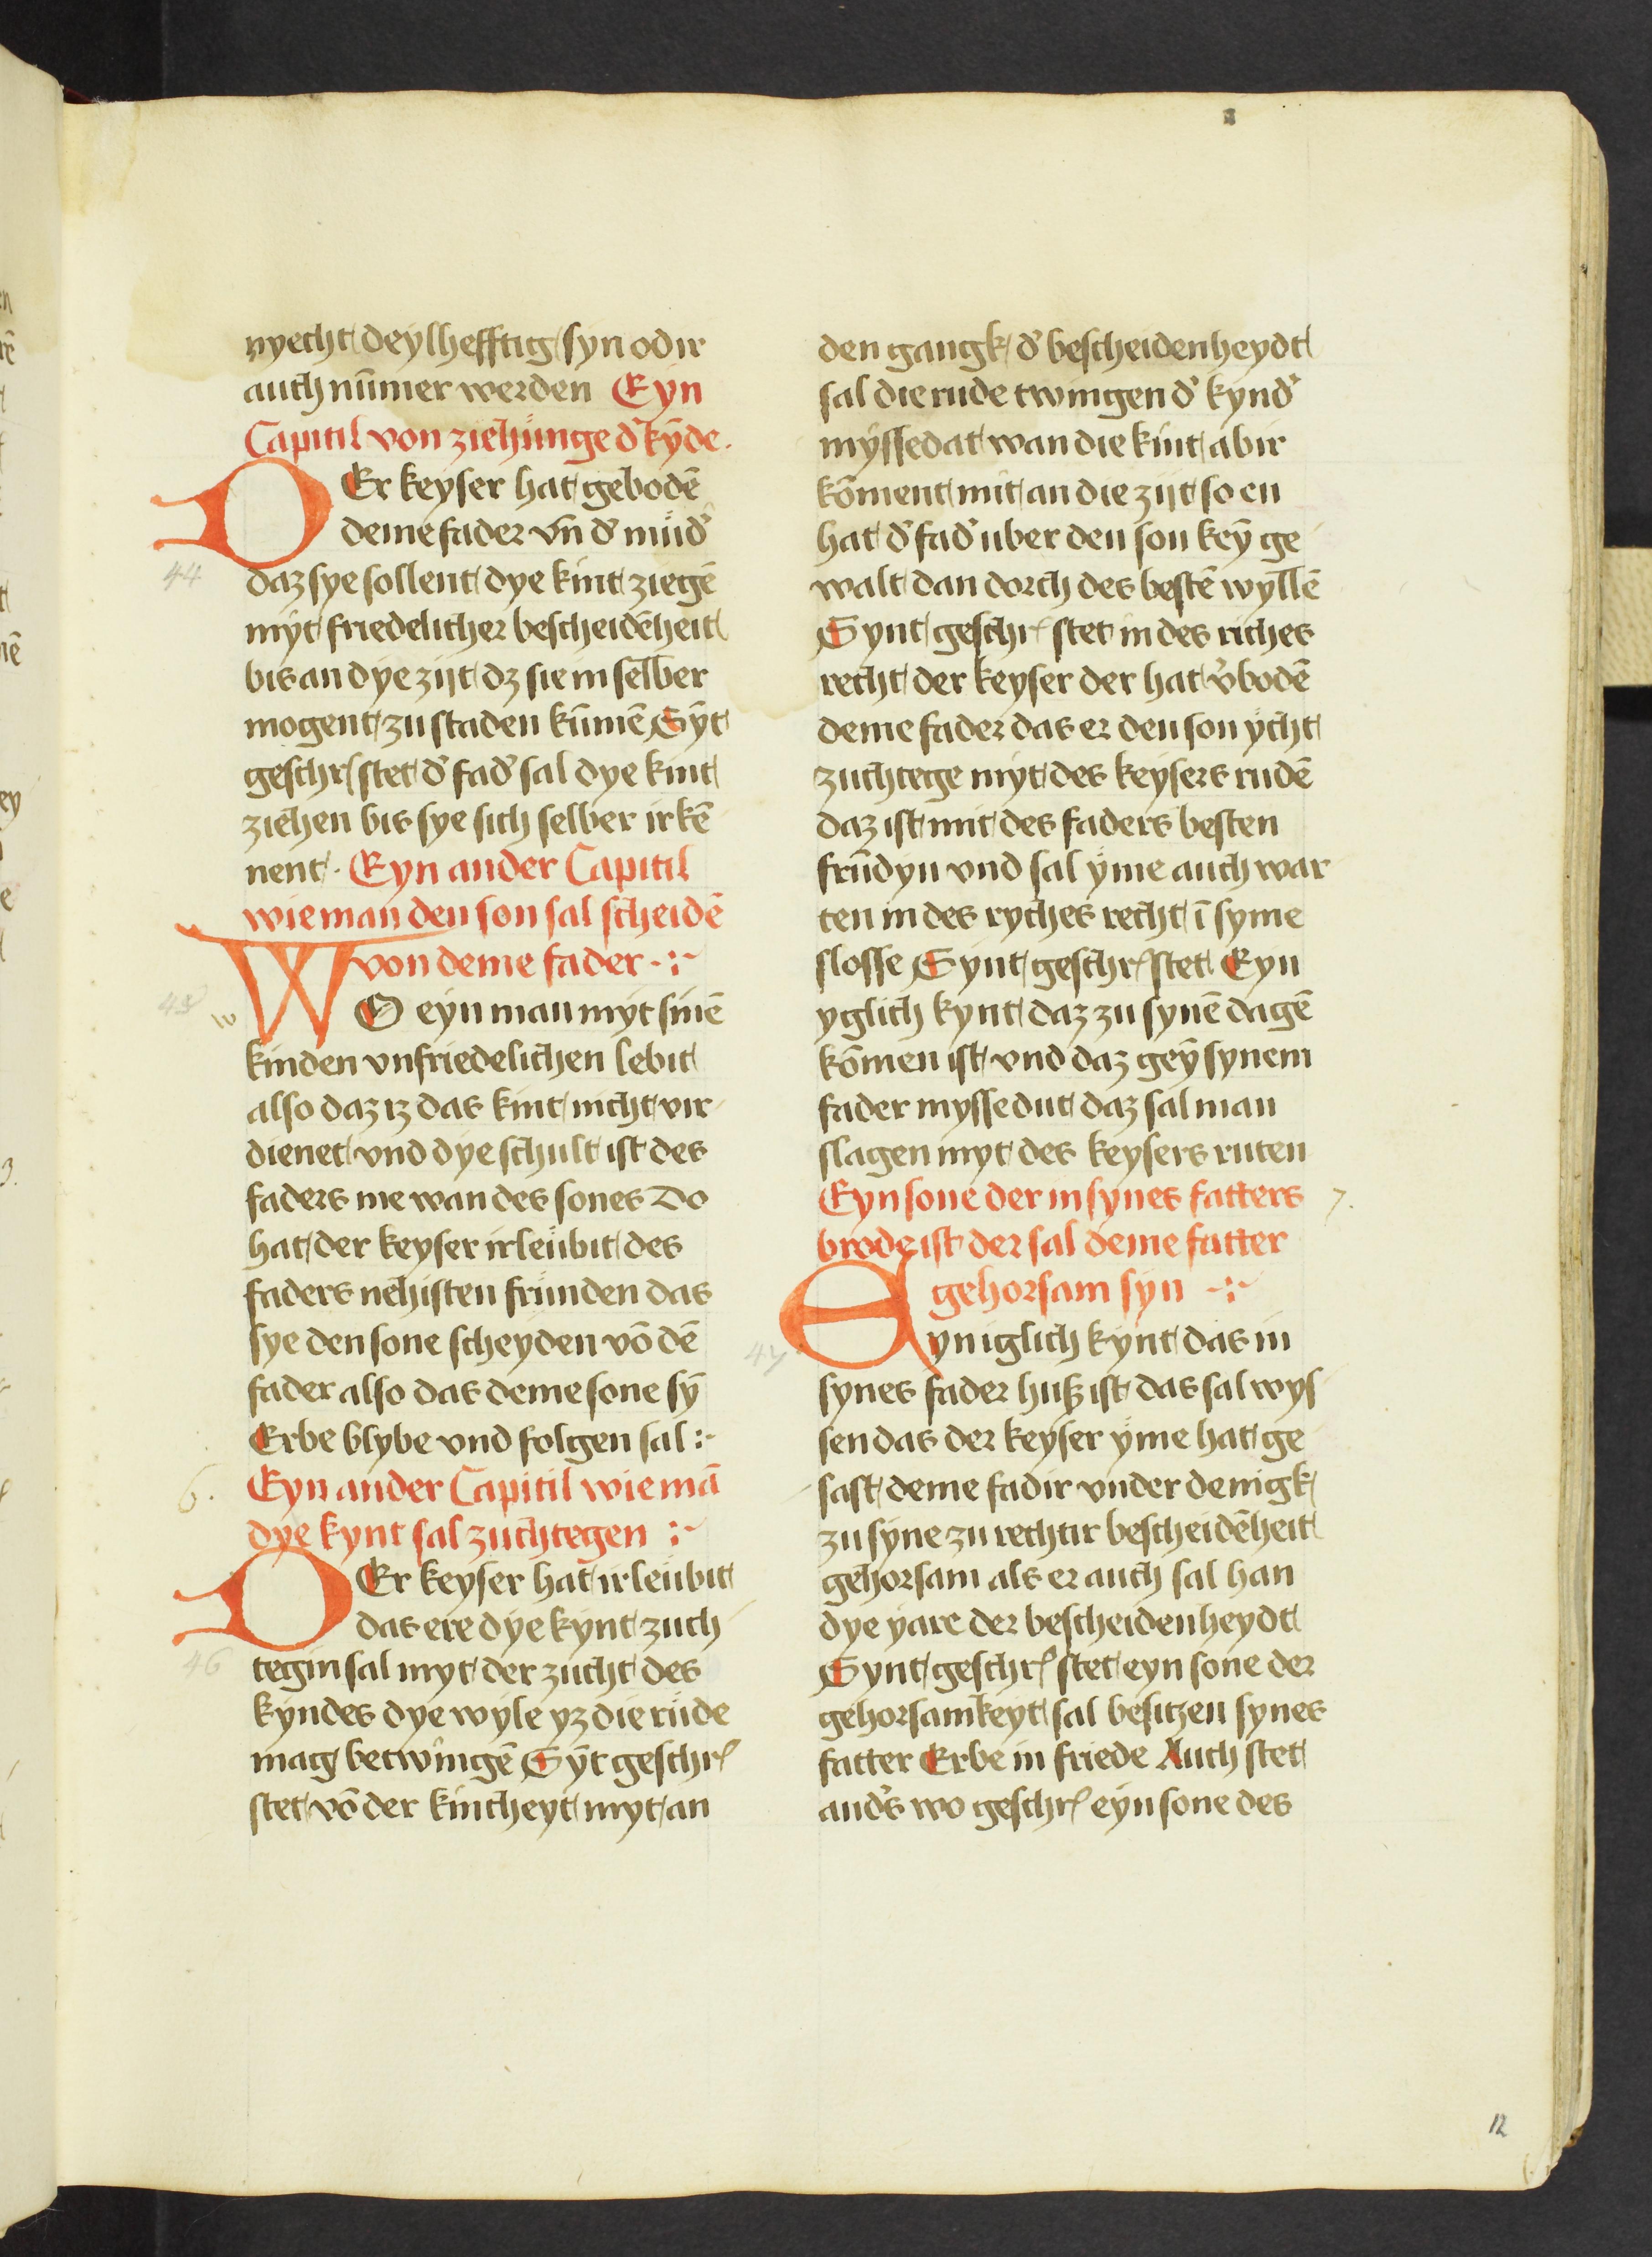 nyecht deylhefftig syn odir
auch nūmer werden Eyn
Capitil von ziehunge d' kȳde.
DEr keyser hat gebodē
deme fader vn̄ d' mud'
44
daz sye sollent dye kint ziegē
myt friedelicher bescheidēheit
bis an dye zijt dz sie in selber
mogent zu staden kūmē Sȳt
geschr stet d' fad' sal dye kint
ziehen bis sye sich selber irkē
nent. Eyn ander Capitil
wie man den son sal scheidē
von deme fader
WO eyn man myt sinē
kinden vnfriedelichen lebit
also daz iz das kint nicht vir
dienet vnd dye schult ist des
faders me wan des sones Do
hat der keyser irleubit des
faders nehisten frunden das
sye den sone scheyden vō dē
fader also das deme sone sȳ
Erbe blybe vnd folgen sal
6. Eyn ander Capitil wie mā
dye kynt sal zuchtegen
DEr keyser hat irleubit
das ere dye kynt zuch
46 tegin sal myt der zucht des
kyndes dye wyle yz die rude
mag betwingē Sȳt geschr
stet vō der kintheyt myt an
den gangk d' bescheidenheydt
sal die rude twingen d' kynd'
myssedat wan die kint abir
kōment mit an die zijt so en
hat d' fad' uber den son keȳ ge
walt dan dorch des bestē wyllē
Synt geschr stet in des riches
recht der keyser der hat v'bodē
deme fader das er den son ycht
zuchtege myt des keysers rudē
daz ist mit des faders besten
frūdyn vnd sal yme auch war
ten in des ryches recht ī syme
slosse Synt geschr stet Eyn
yglich kynt daz zu synē dagē
kōmen ist vnd daz geȳ synem
fader myssedut daz sal man
slagen myt des keysers ruten
Eyn sone der in synes fatters 7.
brode ist der sal deme fatter
gehorsam syn
47 Eyn iglich kynt das in
synes fader huß ist das sal wys
sen das der keyser yme hat ge
sast deme fadir vnder denigk
zu syne zu rechtir bescheidēheit
gehorsam als er auch sal han
dye yare der bescheidenheydt
Synt geschr stet eyn sone der
gehorsamkeyt sal besitzen synes
fatter Erbe in friede Auch stet
and's wo geschr eyn sone des
12